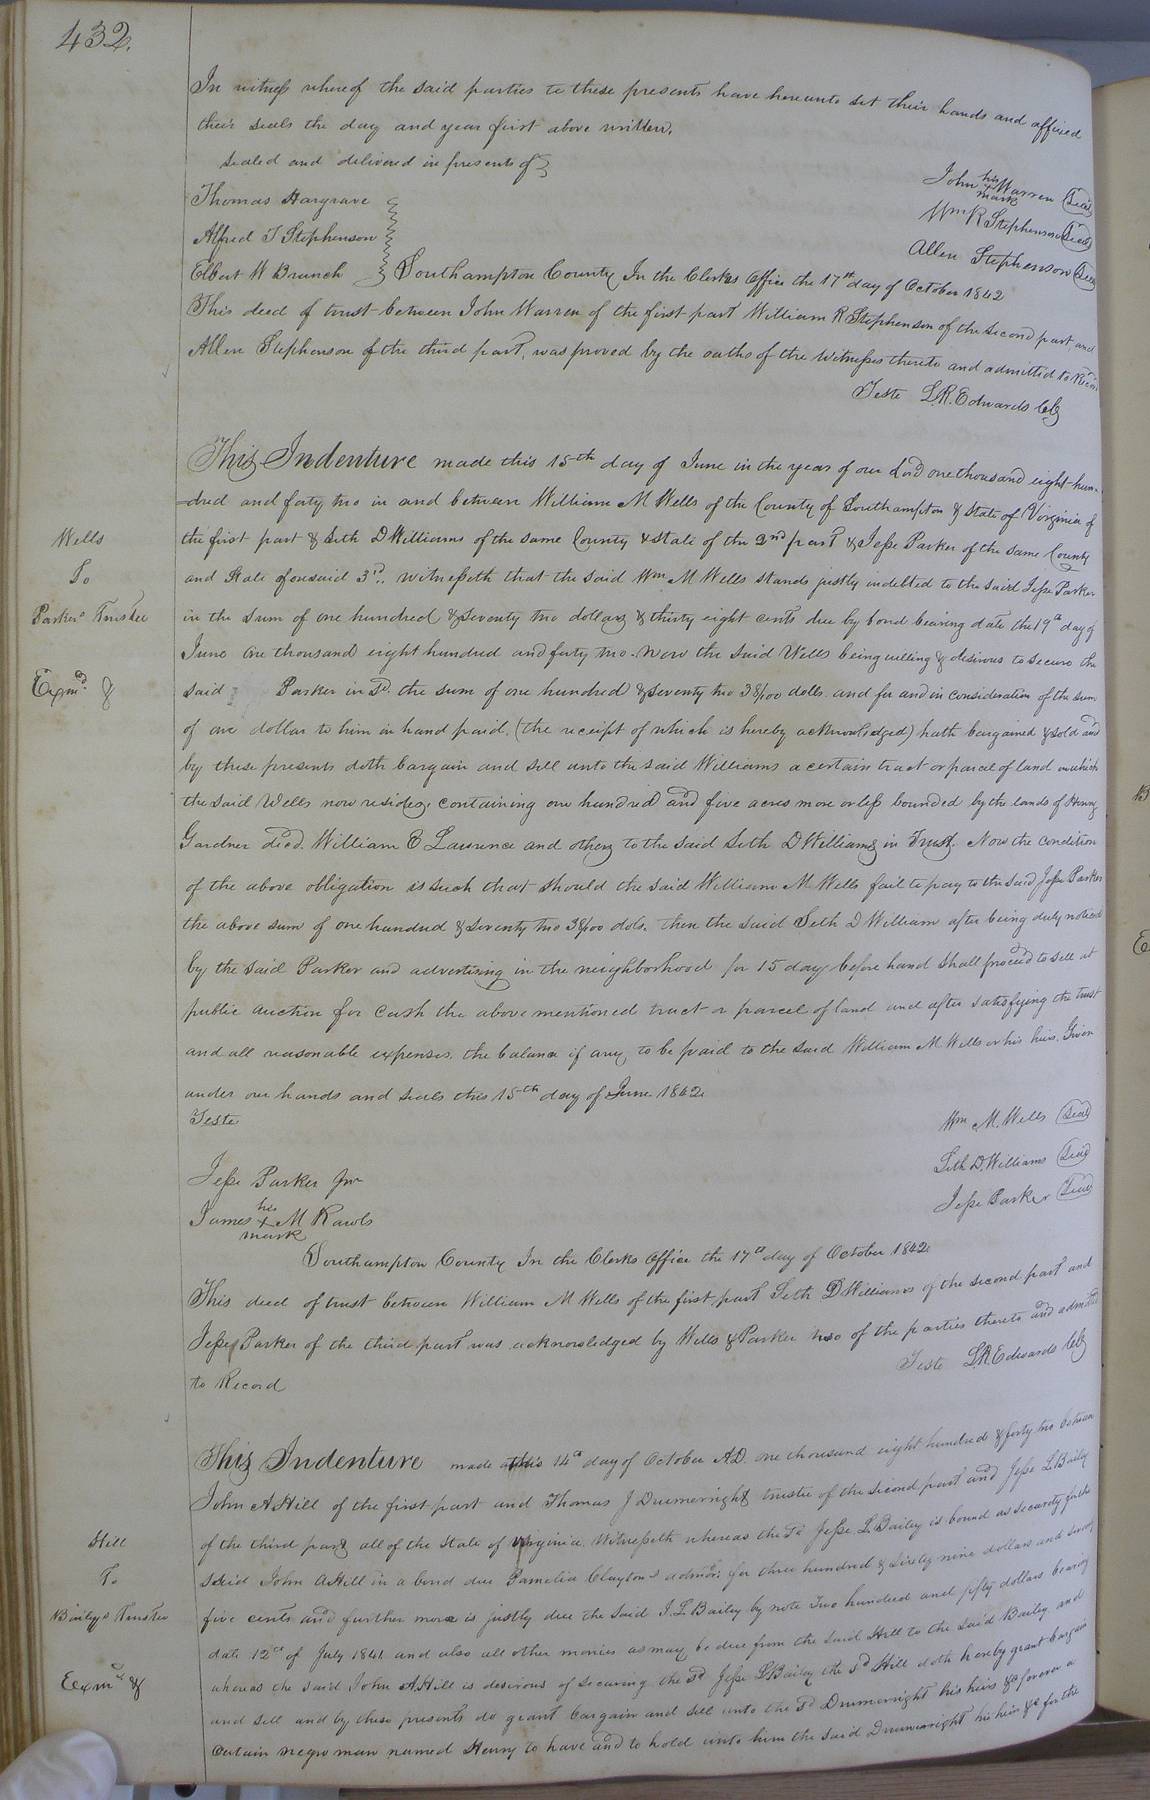 432.
In witness whereof the said parties to these presents have hereunto set their hands and affixed
their seals the day and year first above written,
Sealed and delivered in presents of
John his x mark Warren (Seal)
Thomas Hargrave
Wm R Stephenson (Seal)
Alfred J Stephenson
Allen Stephenson (Seal)
Elbert W Branch Southampton County In the Clerks Office the 17th day of October 1842
This deed of trust between John Warren of the first part William R Stephenson of the second part and
Allen Stephenson of the third part, was proved by the oaths of the witnesses thereto and admitted to Record
Teste L.R. Edwards Clk
This Indenture made this 15th day of June in the year of our Lord one thousand eight-hun-
=dred and forty two in and between William M Wells of the County of Southampton & State of Virginia of
Wells
To
Parker's Trustee
Exmd &
the first part & Seth D Williams of the same County & State of the 2nd part & Jesse Parker of the same County
and State aforesaid 3rd, witnesseth that the said Wm M Wells stands justly indebted to the said Jesse Parker
in the sum of one hundred & seventy two dollars & thirty eight cents due by bond bearing date the 19th day of
June One thousand eight hundred and forty two. Now the said Wells being willing & desirous to secure the
said Parker in sd. the sum of one hundred & seventy two 38/100 dolls. and for and in consideration of the sum
of one dollar to him in hand paid, (the receipt of which is hereby acknowledged) hath bargained & sold and
by these presents doth bargain and sell unto the said Williams a certain tract or parcel of land on which
the said Wells now resides, containing one hundred and five acres more or less bounded by the lands of Henry
Gardner decd. William E Lawrence and others to the said Seth D Williams in Trust. Now the condition
of the above obligation is such that should the said William M Wells fail to pay to the said Jesse Parker
the above sum of one hundred & seventy two 38/100 dols. then the said Seth D William after being duly noticed
by the said Parker and advertising in the neighborhood for 15 days before hand shall proceed to sell at
public auction for cash the above mentioned tract or parcel of land and after satisfying the trust
and all reasonable expenses, the balance if any, to be paid to the said William M Wells or his heirs. Given
under our hands and seals this 15th day of June 1842
Teste
Wm M. Wells (Seal)
Seth D. Williams (Seal)
Jesse Parker Jnr
Jesse Parker (Seal)
James his x mark M Rawls
Southampton County In the Clerks Office the 17th day of October 1842
This deed of trust between William M Wells of the first part Seth D Williams of the second part and
Jesse Parker of the third part was acknowledged by Wells & Parker two of the parties thereto and admitted
to Record
Teste L.R. Edwards Clk
This Indenture made this 14th day of October A.D. one thousand eight hundred & forty two between
John A Hill of the first part and Thomas J Drumwright trustee of the second part and Jesse L Bailey
Hill
To
Bailey's Trustee
Exmd &
of the third part all of the State of Virginia. Witnesseth whereas the sd Jesse L. Bailey is bound as security for the
said John A Hill in a bond due Pamelia Clayton's admor. for three hundred & sixty nine dollars and seventy
five cents and further more is justly due the said J. L. Bailey by note Two hundred and fifty dollars bearing
date 12th of July 1841 and also all other monies as may be due from the said Hill to the said Bailey and
whereas the said John A Hill is desirous of securing the sd Jesse L Bailey the sd Hill doth hereby grant bargain
and sell and by these presents do grant bargain and sell unto the sd Drumwright his heirs &c forever a
certain negro man named Henry to have and to hold unto him the said Drumwright his heirs &c for the